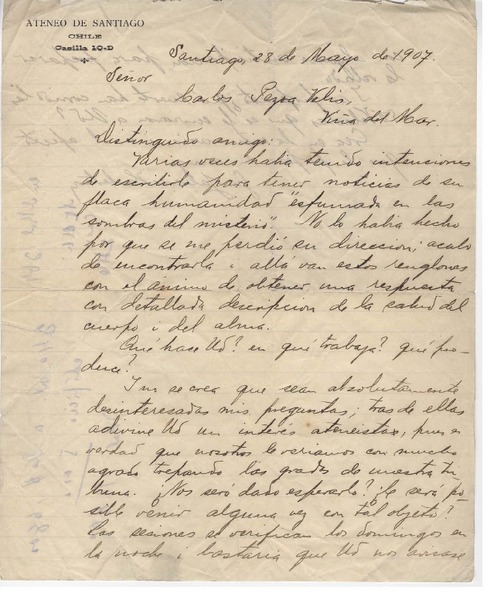 ATENEO DE SANTIAGO
CHILE
Casilla 10-D
Santiago, 28 de Mayo de 1907.
Señor
Carlos Pezoa Velis.
Viña del Mar.
Distinguido amigo:
Varias veces habia tenido intenciones
de escribirle para tener noticias de su
flaca humanidad "esfumada en las
sombras del misterio". No lo habia hecho
por que se me perdió su direccion; acabo
de encontrarla i allá van estos renglones
con el animo de obtener una respuesta
con detallada descripcion de la salud del
cuerpo i del alma.
Qué hase Ud? en qué trabaja? qué pro-
duce?
I no se crea que sean absolutamente
desinteresadas mis preguntas; tras de ellas
adivine Ud un interés ateneista, pues en
verdad que nosotros le veriamos con mucho
agrado trepando las gradas de nuestra tri-
buna. ¿Nos será dado esperarlo? ¿le será po-
sible venir alguna vez con tal objeto?
Las sesiones se verifican los domingos en
la noche i bastaria que Ud nos avisase